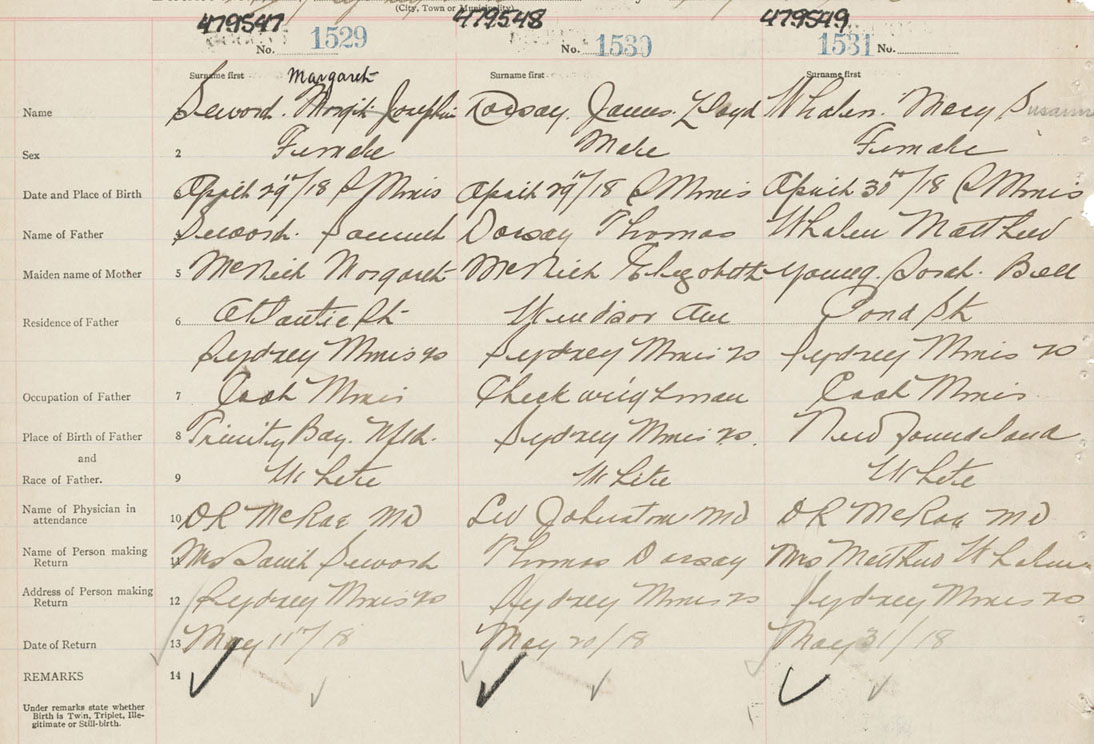 (City, Town or Municipality)
479547 479548 479549
No. 1529 No. 1530 1531 No.
Surname first Margaret Surname first Surname first
Name Seword. Josephin Dorsay. James. Lloyd Whalen. Mary Susanne
Sex 2 Female Male Female
Date and Place of Birth April 29"/18 S Mines April 29"/18 S Mines April 30th/18 S Mines
Name of Father Seword. Samuel Dorsay Thomas Whalen Matthew
Maiden name of Mother 5 McNeil Margaret McNeil Elizabeth Young. Sarah. Bell
Residence of Father 6 Atlantic St Windsor Ave Pond St
Sydney Mines Sydney Mines Sydney Mines
Occupation of Father 7 Coal Mines Check weighman Coal Mines
Place of Birth of Father 8 Trinity Bay. Nfld. Sydney Mines Newfoundland
and
Race of Father. 9 White White White
Name of Physician in
attendance 10 DR McRae MD Johnston MD DR McRae MD
Name of Person making
Return 11 Mrs Seword Thomas Dorsay Mrs Matthew Whalen
Address of Person making
Return 12 Sydney Mines Sydney Mines Sydney Mines
Date of Return 13 May 11"/18 May 20/18 May 31/18
REMARKS 14
Under remarks state whether
Birth is Twin, Triplet, Ille-
gitimate or Still-birth.